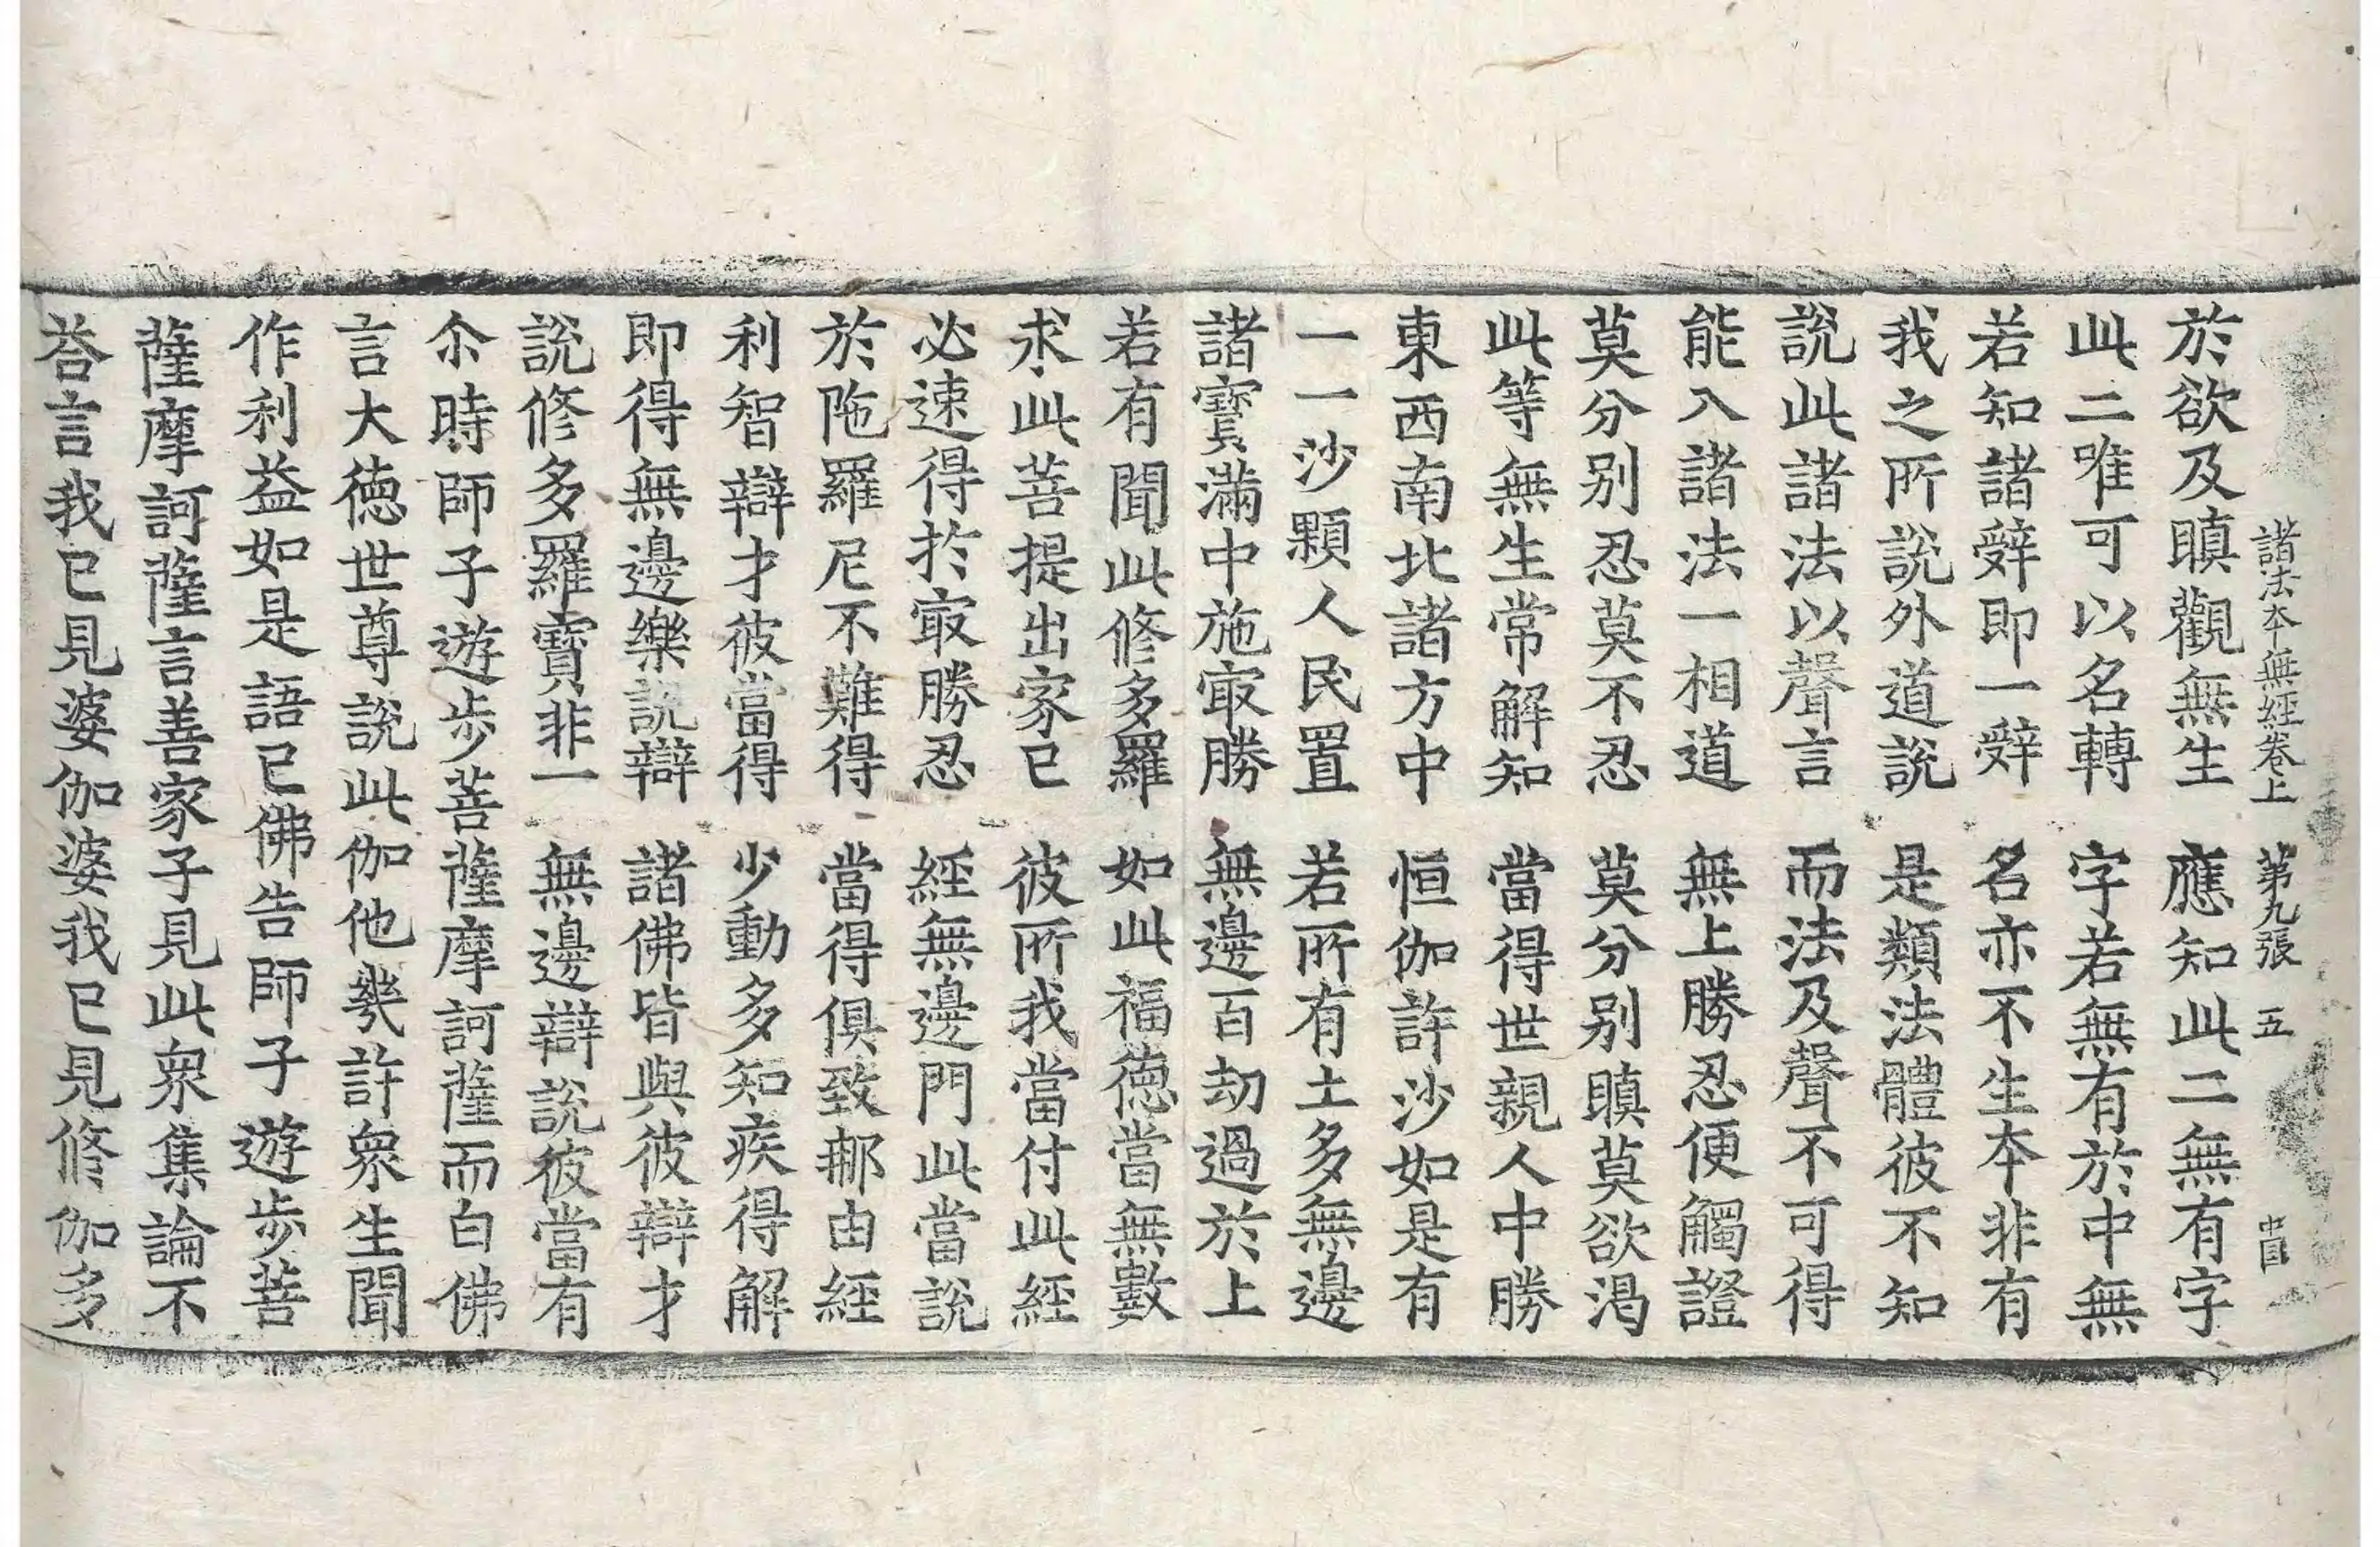 諸法本無經卷上 第九張 五
於欲及瞋觀無生 應知此二無有字
此二唯可以名轉 字若無有於中無
若知諸辤即一辤 名亦不生本非有
我之所說外道說 是類法體彼不知
說此諸法以聲言 而法及聲不可得
能入諸法一相道 無上勝忍便觸證
莫分別忍莫不忍 莫分別瞋莫欲渴
此等無生常解知 當得世親人中勝
東西南北諸方中 恒伽許沙如是有
一一沙顆人民置 若所有土多無邊
諸寶滿中施㝡勝 無邊百劫過於上
若有聞此修多羅 如此福德當無數
求此菩提出家已 彼所我當付此經
必速得於㝡勝忍 經無邊門此當說
於陁羅尼不難得 當得俱致𨙻由經
利智辯才彼當得 少動多知疾得解
即得無邊樂說辯 諸佛皆與彼辯才
說修多羅寶非一 無邊辯說彼當有
尒時師子遊步菩薩摩訶薩而白佛
言大德世尊說此伽他幾許衆生聞
作利益如是語已佛告師子遊步菩
薩摩訶薩言善家子見此衆集論不
荅言我已見婆伽婆我已見修伽多